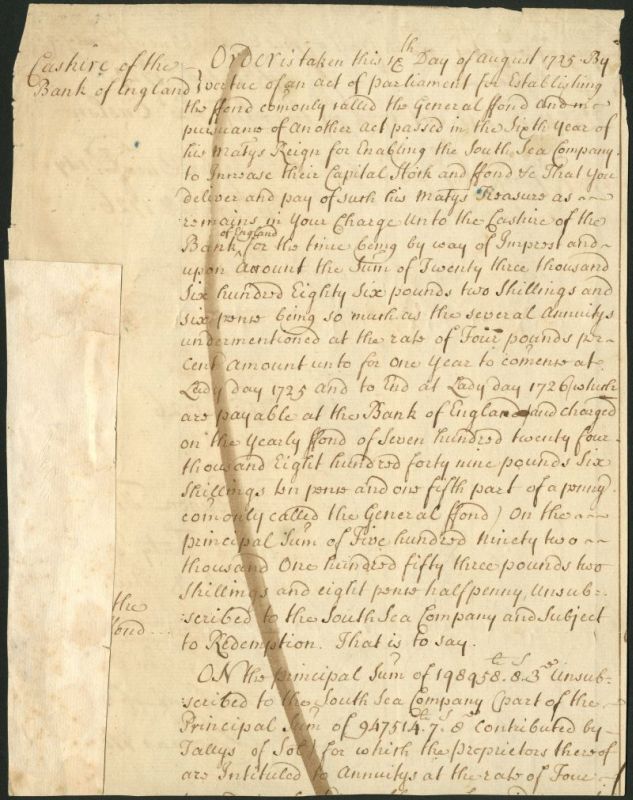 Cashire of the
Bank of England
ORDER is taken this 18th Day of august 1725. By
vertue of an act of parliament for Establishing
the ffond comonly called the General ffond and in
pursuance of another act passed in the Sixth Year of
his Matys Reign for Enabling the South Sea Company
to Increase their Capital Stock and ffond &c That You
deliver and pay of such his Matys Treasure as
remains in Your Charge Unto the Cashire of the
Bank of England for the time being by way of Imprest and
upon Account the Sum of Twenty three thousand
Six hundred Eighty Six pounds two Shillings and
six pence being so much as the several Annuitys
undermentioned at the rate of Four pounds per
Cent amount unto for one Year to comence at
Lady day 1725 and to End at Lady day 1726 (which
are payable at the Bank of England and charged
on the Yearly ffond of Seven hundred twenty four
thousand Eight hundred forty nine pounds Six
Shillings ten pence and one fifth part of a penny
comonly called the General ffond) On the
principal Sum of Five hundred ninety two
thousand One hundred fifty three pounds two
Shillings and eight pence halfpenny, Unsub-
scribed to the South Sea Company and Subject
to Redemption. That is to say.
the
ffond
ON the principal Sum of 198958. 8. 3 Unsub-
scribed to the South Sea Company (part of the
Principal Sum of 947514. 7. 8 Contributed by
Tallys of Sol) for which the proprietors thereof
are Intituled to Annuitys at the rate of Four